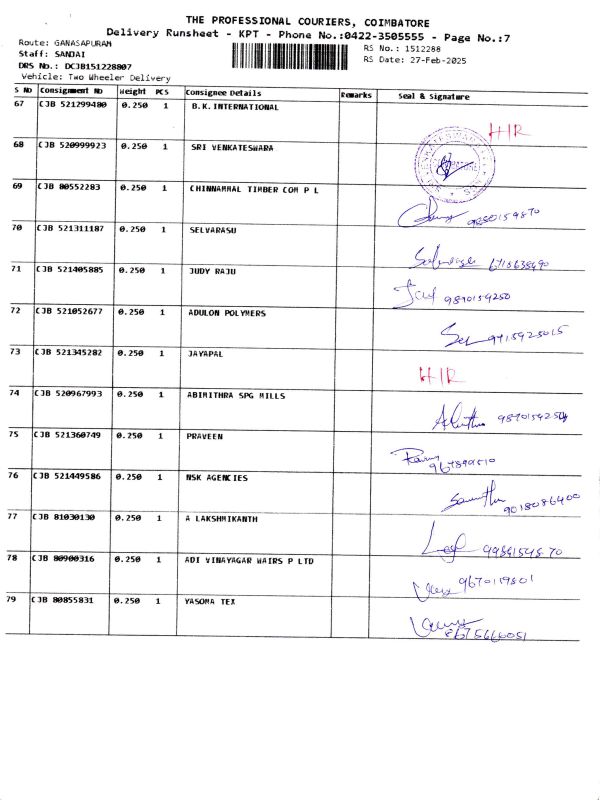 THE PROFESSIONAL COURIERS, COIMBATORE
Delivery Runsheet - KPT - Phone No.:0422-3505555 - Page No.:7
Route: GANASAPURAM
RS No.: 1512288
Staff: SANJAI
RS Date: 27-Feb-2025
DRS No.: DCJB151228807
Vehicle: Two Wheeler Delivery
S No Consignment No Weight PCS Consignee Details Remarks Seal & Signature
67 CJB 521299480 0.250 1 B.K.INTERNATIONAL HIR
68 CJB 520999923 0.250 1 SRI VENKATESWARA
69 CJB 80552283 0.250 1 CHINNAMMAL TIMBER COM P L
70 CJB 521311187 0.250 1 SELVARASU
71 CJB 521405885 0.250 1 JUDY RAJU 9870159250
72 CJB 521052677 0.250 1 ADULON POLYMERS 9715925015
73 CJB 521345282 0.250 1 JAYAPAL HIR
74 CJB 520967993 0.250 1 ABIMITHRA SPG MILLS
75 CJB 521360749 0.250 1 PRAVEEN
76 CJB 521449586 0.250 1 NSK AGENCIES 9018086400
77 CJB 81030130 0.250 1 A LAKSHMIKANTH
78 CJB 80900316 0.250 1 ADI VINAYAGAR WAIRS P LTD
79 CJB 80855831 0.250 1 YASODA TEX